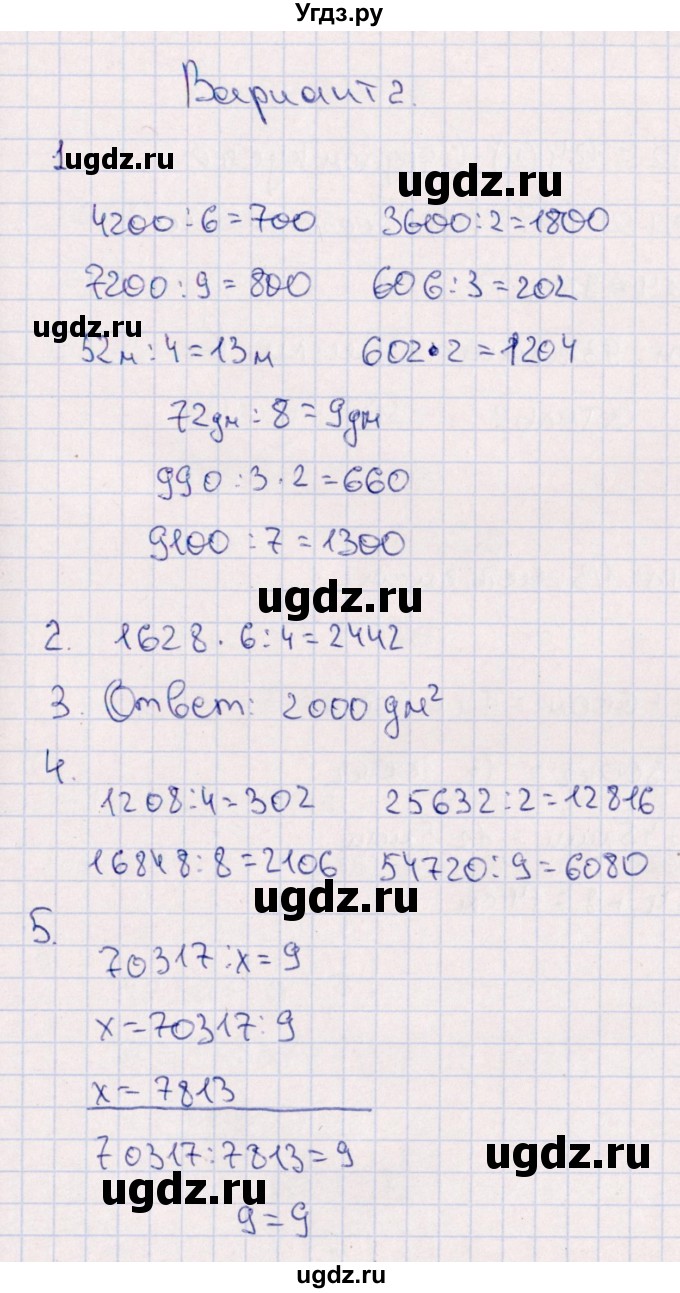 Угдз.ру
Вариант 2.
1 ugdz.ru
ugdz.ru
4200 : 6 = 700 3600 : 2 = 1800
7200 : 9 = 800 606 : 3 = 202
ugdz.ru
52м : 4 = 13м 602 • 2 = 1204
72дм : 8 = 9дм
990 : 3 · 2 = 660
9100 : 7 = 1300
ugdz.ru
2. 1628 · 6 : 4 = 2442
3. Ответ: 2000 дм²
4.
1208 : 4 = 302 25632 : 2 = 12816
16848 : 8 = 2106 54720 : 9 = 6080
ugdz.ru
5.
70317 : x = 9
x = 70317 : 9
x = 7813
70317 : 7813 = 9
ugdz.ru
ugdz.ru
9 = 9
ugdz.ru